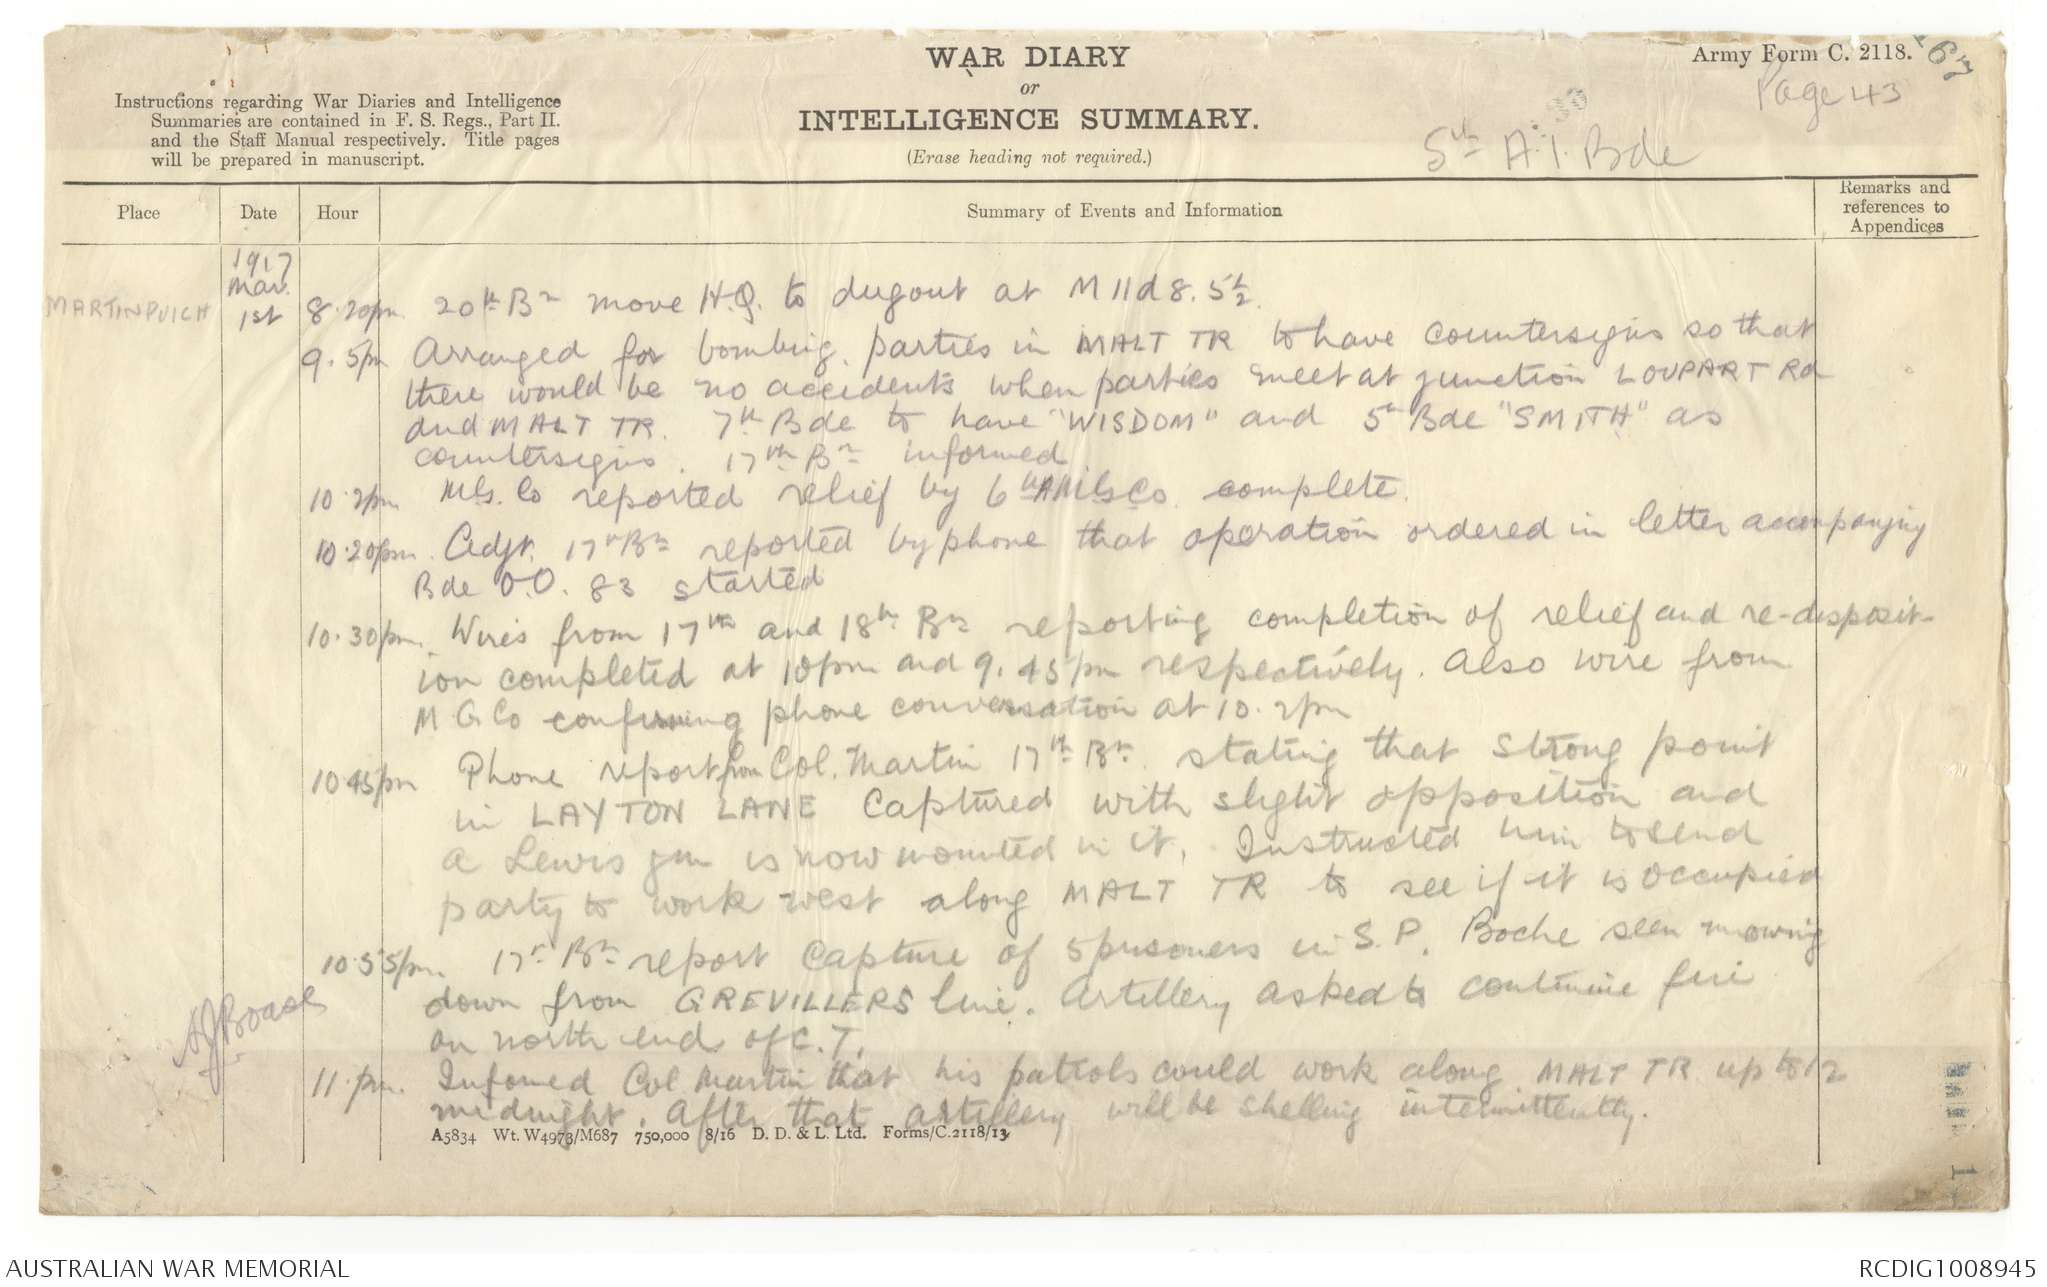 WAR DIARY
or
INTELLIGENCE SUMMARY.
(Erase heading not required.)
Army Form C. 2118.
Page 43
5th A.I. Bde
Instructions regarding War Diaries and Intelligence
Summaries are contained in F. S. Regs., Part II.
and the Staff Manual respectively. Title pages
will be prepared in manuscript.
Place
Date
Hour
Summary of Events and Information
Remarks and
references to
Appendices
1917
Mar.
MARTINPUICH 1st 8.20pm 20th Bn move H.Q. to dugout at M11d8.5½.
9.5pm Arranged for bombing parties in MALT TR to have countersigns so that
there would be no accidents when parties meet at junction LOUPART Rd
and MALT TR. 7th Bde to have "WISDOM" and 5th Bde "SMITH" as
countersigns. 17th Bn informed
10.2pm M.G. Co reported relief by 6th AMGCo. complete.
10.20pm. Adjt. 17th Bn reported by phone that operation ordered in letter accompanying
Bde O.O. 83 started
10.30pm. Wires from 17th and 18th Bn reporting completion of relief and re-disposit-
ion completed at 10pm and 9.45pm respectively. Also wire from
M G Co confirming phone conversation at 10.2pm
10 45pm Phone report from Col. Martin 17th Bn. stating that strong point
in LAYTON LANE captured with slight opposition and
a Lewis gun is now mounted in it. Instructed him to send
party to work west along MALT TR to see if it is occupied
10.55pm. 17th Bn report capture of 5 prisoners in S.P. Boche seen moving
down from GREVILLERS line. Artillery asked to continue fire
on north end of C.T.
11.pm. Infomed Col Martin that his patrols could work along MALT TR up to 12
midnight. After that artillery will be shelling intermittently.
AJBoase
A5834 Wt. W4973/M687 750,000 8/16 D. D. & L. Ltd. Forms/C.2118/13
AUSTRALIAN WAR MEMORIAL
RCDIG1008945